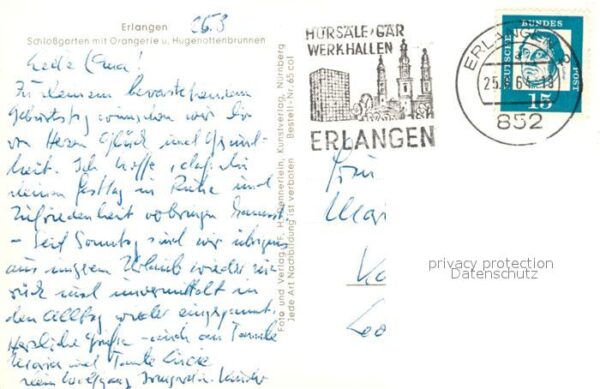 Erlangen
Schloßgarten mit Orangerie u. Hugenottenbrunnen
Liebe Oma!
Zu Deinem bevorstehenden
Geburtstag wünschen wir Dir
von Herzen Glück und Gesund-
heit. Ich hoffe, daß Du
Deinen Festtag in Ruhe und
Zufriedenheit verbringen kannst.
- Seit Sonntag sind wir übrigens
aus unserem Urlaub wieder zu-
rück und unvermittelt in
den Alltag wieder eingespannt.
Herzliche Grüße - auch an Tante
Maria und Tante
Dein Wolfgang, Irmgard u. Kinder
Foto und Verlag Nürnberg
Jede Art Nachbildung ist verboten Bestell-Nr. 65 col
HÖRSÄLE, GÄR
WERKHALLEN
ERLANGEN
ERLANGEN
852
DEUTSCHE BUNDESPOST
15
Frau
privacy protection
Datenschutz